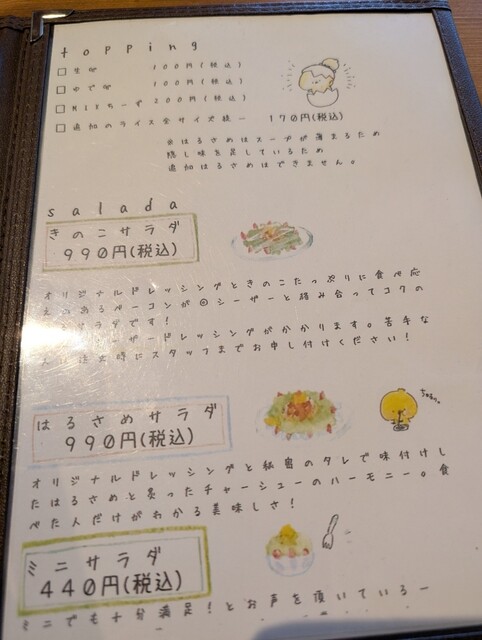 topping
□ 生卵 100円(税込)
□ ゆで卵 100円(税込)
□ MIXちーず 200円(税込)
□ 追加のライス全サイズ統一 170円(税込)
※はるさめはスープが薄まるため
隠し味を足しているため
追加はるさめはできません。
salada
きのこサラダ
990円(税込)
オリジナルドレッシングときのこたっぷりに食べ応
えのあるベーコンが◎シーザーと絡み合ってコクの
サラダです!
ザードレッシングがかかります。苦手な
注文時にスタッフまでお申し付けください!
はるさめサラダ
990円(税込)
オリジナルドレッシングと秘密のタレで味付けし
たはるさめと炙ったチャーシューのハーモニー。食
べた人だけがわかる美味しさ!
ミニサラダ
440円(税込)
ミニでも十分満足!とお声を頂いているー